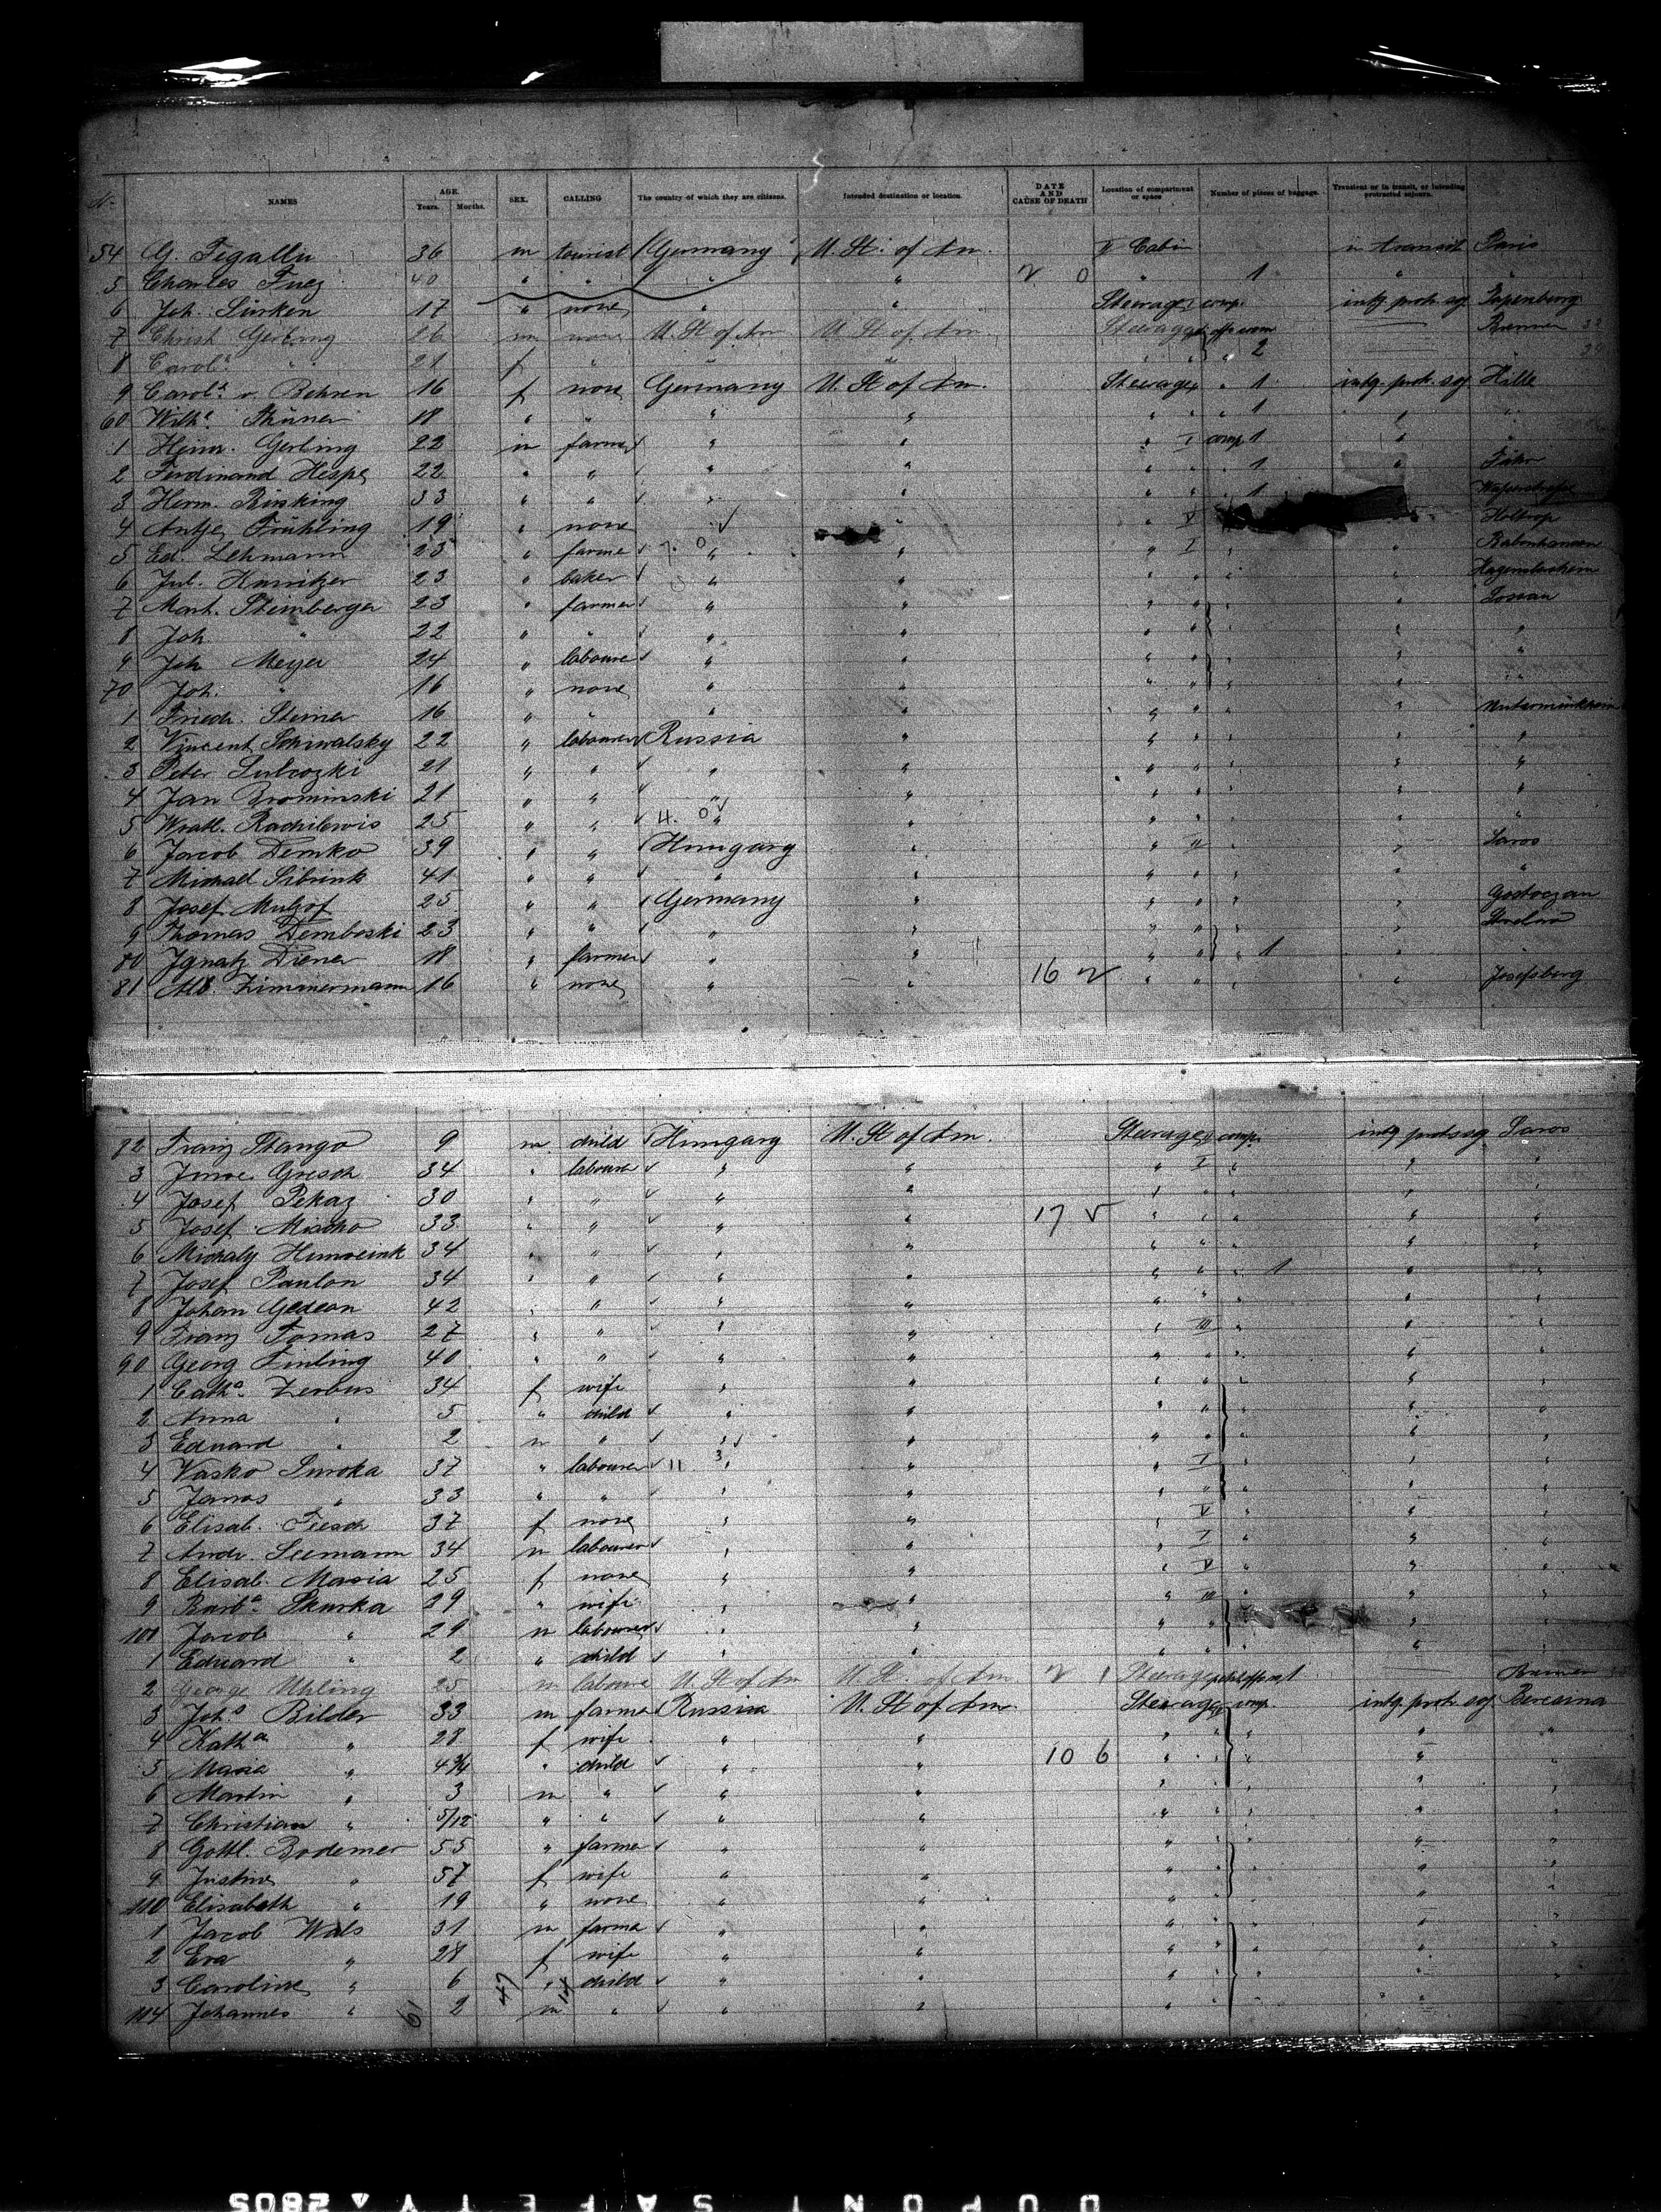 No. NAMES AGE. Years. Months. SEX. CALLING The country of which they are citizens. Intended destination or location. DATE AND CAUSE OF DEATH Location of compartment or space Number of pieces of baggage. Transient or in transit, or intending protracted sojourn.
54 G. Fegallu 36 m tourist Germany U. St. of Am. II Cabin in transit Paris
5 Charles Fuez 40 " " " " 2 0 " 1 " "
6 Joh. Sürken 17 " none " " Steerage I comp. intg. protr. soj Papenburg
7 Christ Gerbing 26 m none U. St of Am U. St of Am. Steerage Bremen
8 Carol.e " 21 f " " " " 2 "
9 Carol.e v. Behren 16 f none Germany U. St of Am. Steerage " 1 intg. protr. soj Hille
60 Wilh.e 18 " " " " " " 1 " "
1 Heinr. Gerling 22 m farmer " " " I comp 1 " "
2 Ferdinand Hespe 22 " " " " " " 1 "
3 Herm. Rinsking 33 " " " " " " 1
4 Antje Frühling 19 " none " " " V Holtrop
5 Ed. Lehmann 23 " farmer 7. 0 " " " I " " Babenhausen
6 Jul. Kanitzer 23 " baker " " " " " "
7 Mart. Steinberger 23 " farmer " " " " "
8 Joh. " 22 " " " " " " " "
9 Joh Meyer 24 " labourer " " " " " "
70 Joh. " 16 " none " " " " " "
1 Friedr. Steiner 16 " " " " " " " " Untermünkheim
2 Vincent Schiwalsky 22 " labourer Russia " " " " " "
3 Peter Lubcozki 21 " " " " " " " " "
4 Jan Brominski 21 " " " " " " " " "
5 Wratl. Rachilewis 25 " " 4. 0 " " " " " " "
6 Jacob Demko 39 " " Hungary " " II " " Saros
7 Michael Sibrink 41 " " " " " " " " "
8 Josef 25 " " Germany " " " " "
9 Thomas Demboski 23 " " " " " " " Strelno
80 Ignatz Diener 18 " farmer " " " " 1 " "
81 Alb. Zimmermann 16 " none " " 16 2 " " " " Josefsberg
82 Franz Stango 9 m child Hungary U. St of Am. Steerage II comp. intg protr soj Saros
3 Imre Gresch 34 " labourer " " " I " " "
4 Josef Pekaz 30 " " " " " " " " "
5 Josef Macko 33 " " " " 17 " " " " "
6 Michaly 34 " " " " " " " " "
7 Josef Paulon 34 " " " " " " " 1 " "
8 Johann Gedeon 42 " " " " " " " " "
9 Franz Tomas 27 " " " " " III " " "
90 Georg Finling 40 " " " " " " " " "
1 Cath.a Zerbus 34 f wife " " " " " " "
2 Anna " 5 " child " " " " " " "
3 Eduard " 2 m " " " " " " " "
4 Vasko Suroka 37 " labourer 11 3 " " " I " " "
5 Janos " 33 " " " " " " " " "
6 Elisab. Tiesch 37 f none " " " V " " "
7 Andr. Seemann 34 m labourer " " " I " " "
8 Elisab. Maria 25 f none " " " V " " "
9 Barb.a Skurka 29 " wife " " " III " " "
100 Jacob " 29 m labourer " " " " " "
1 Eduard " 2 " child " " " " " " "
2 George Uhling 25 m labourer U. St of Am U. St. of Am 2 1 Steerage 1 Bremen
3 Joh.s Bilder 33 m farmer Russia U. St of Am. Steerage comp. intg. protr. soj Beresina
4 Kath.a " 28 f wife " " " " " " "
5 Maria " 4 3/4 " child " " 10 6 " " " " "
6 Martin " 3 m " " " " " " " "
7 Christian " 5/12 " " " " " " " " "
8 Gottl. Bodemer 55 " farmer " " " " " " "
9 Justine " 57 f wife " " " " " " "
110 Elisabeth " 19 " none " " " " " " "
1 Jacob Wals 31 m farmer " " " " " " "
2 Eva " 28 f wife " " " " " " "
3 Caroline " 6 " child " " " " " " "
114 Johannes " 2 m " " " " " " " "
61 47 14
DUPONT SAFETY 2805